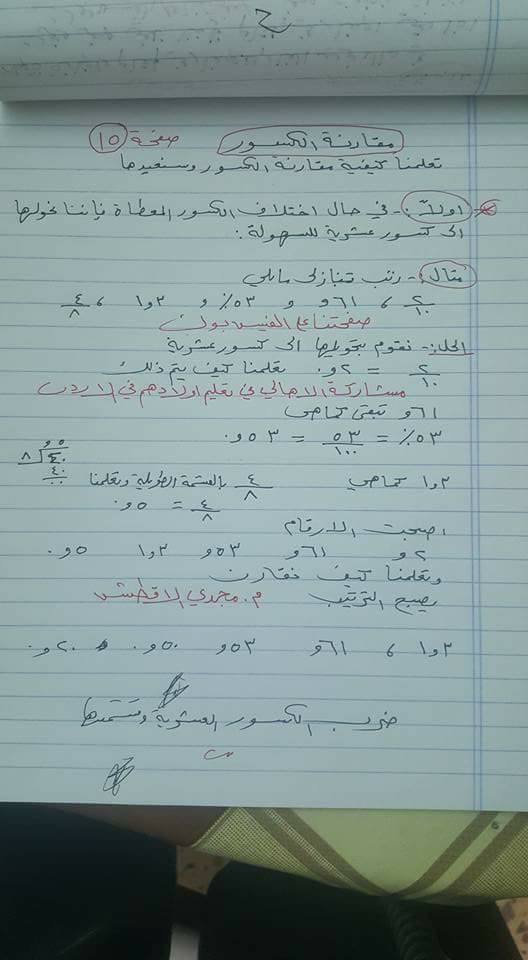 مقارنة الكسور صفحة ١٥
تعلمنا كيفية مقارنة الكسور وسنعيدها
أولاً :- في حال اختلاف الكسور المعطاة فإننا نحولها
الى كسور عشرية للسهولة :
مثال :- رتب تنازلي مايلي
٢/١٠ ، ٦١و و ٥٣٪ و ٢و١ ، ٤/٨
صفحتنا على الفيس بوك
الحل :- نقوم بتحويلها الى كسور عشرية
٢/١٠ = ٢و٠ تعلمنا كيف يتم ذلك
مشاركة الاهالي في تعليم اولادهم في الاردن
٦١و تبقى كما هي
٥٣٪ = ٥٣/١٠٠ = ٥٣و٠
٢و١ كما هي ٤/٨ بالقسمة الطويلة وتعلمنا
٤/٨ = ٥و٠
اصبحت الارقام
٢و ٦١و ٥٣و ٢و١ ٥و٠
وتعلمنا كيف نقارن
يصبح الترتيب م. مجدي الاقطش
٢و١ ، ٦١و ٥٣و ٥٠و٠ ٢٠و٠
ضرب الكسور العشرية وقسمتها